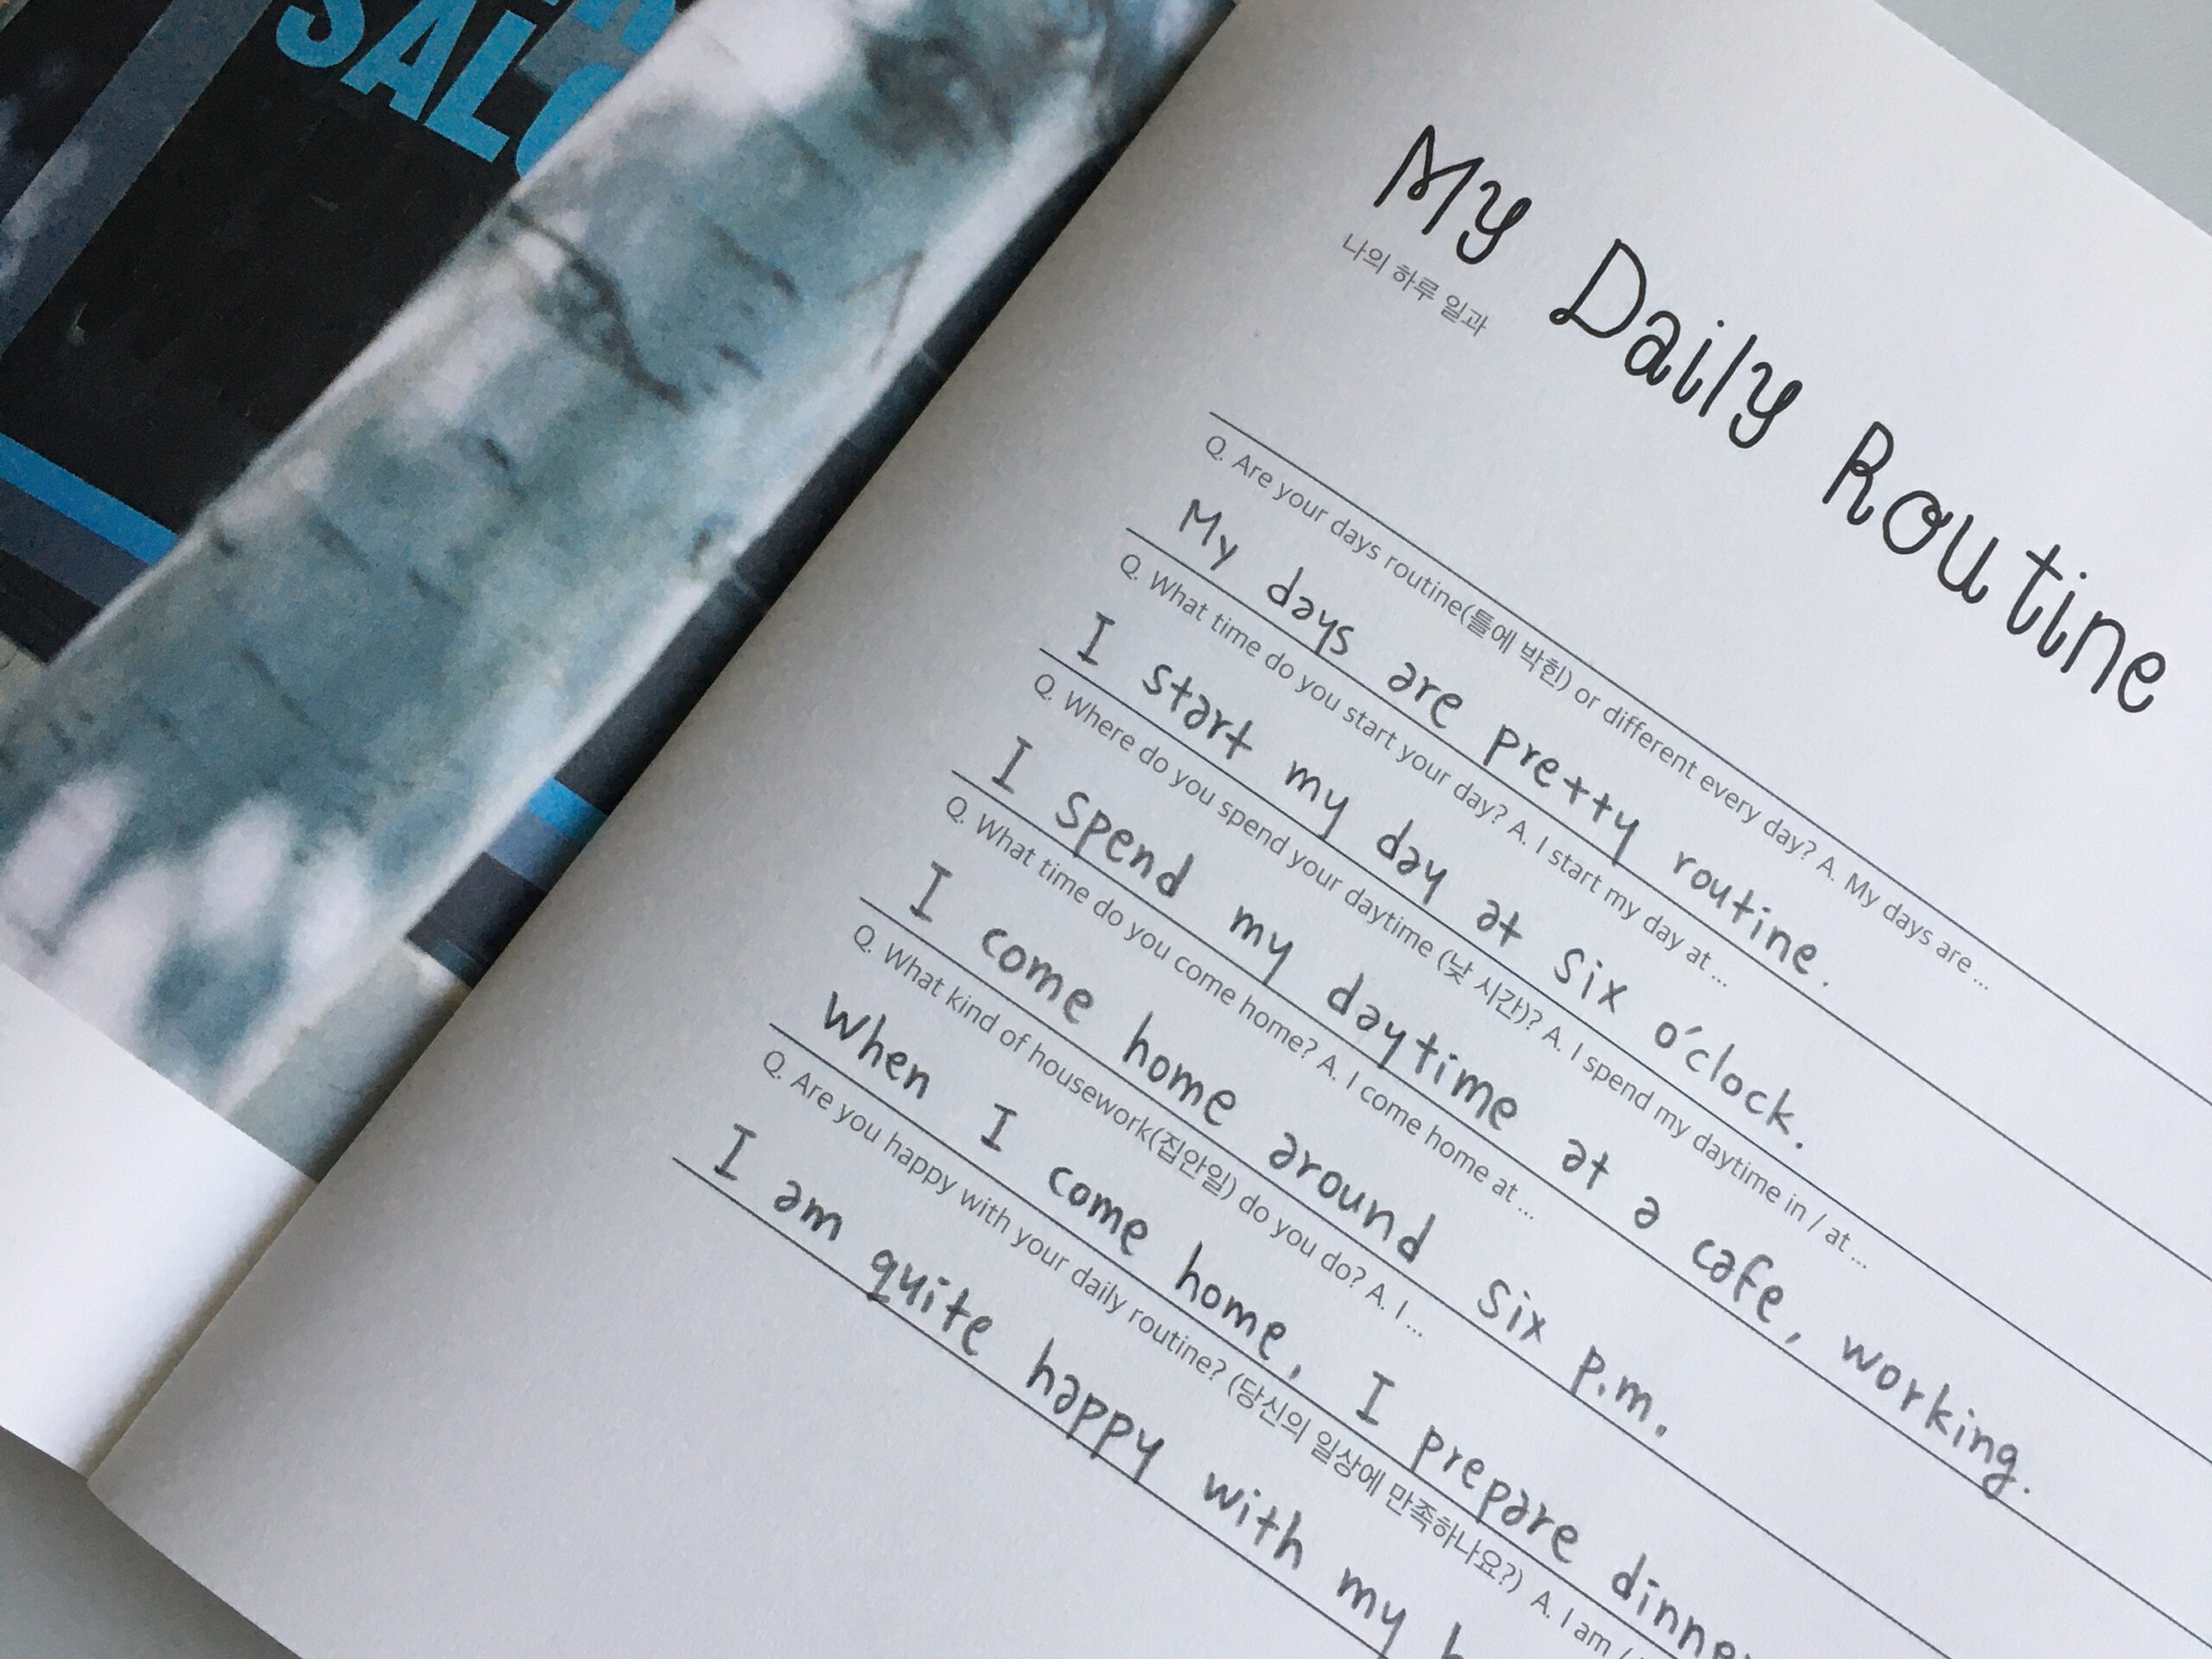 SAL
My Daily Routine
나의 하루 일과
Q. Are your days routine(틀에 박힌) or different every day? A. My days are ...
My days are pretty routine.
Q. What time do you start your day? A. I start my day at ...
I start my day at six o'clock.
Q. Where do you spend your daytime (낮 시간)? A. I spend my daytime in / at ...
I spend my daytime at a cafe, working.
Q. What time do you come home? A. I come home at ...
I come home around six p.m.
Q. What kind of housework(집안일) do you do? A. I ...
When I come home, I prepare dinner
Q. Are you happy with your daily routine? (당신의 일상에 만족하나요?) A. I am /
I am quite happy with my